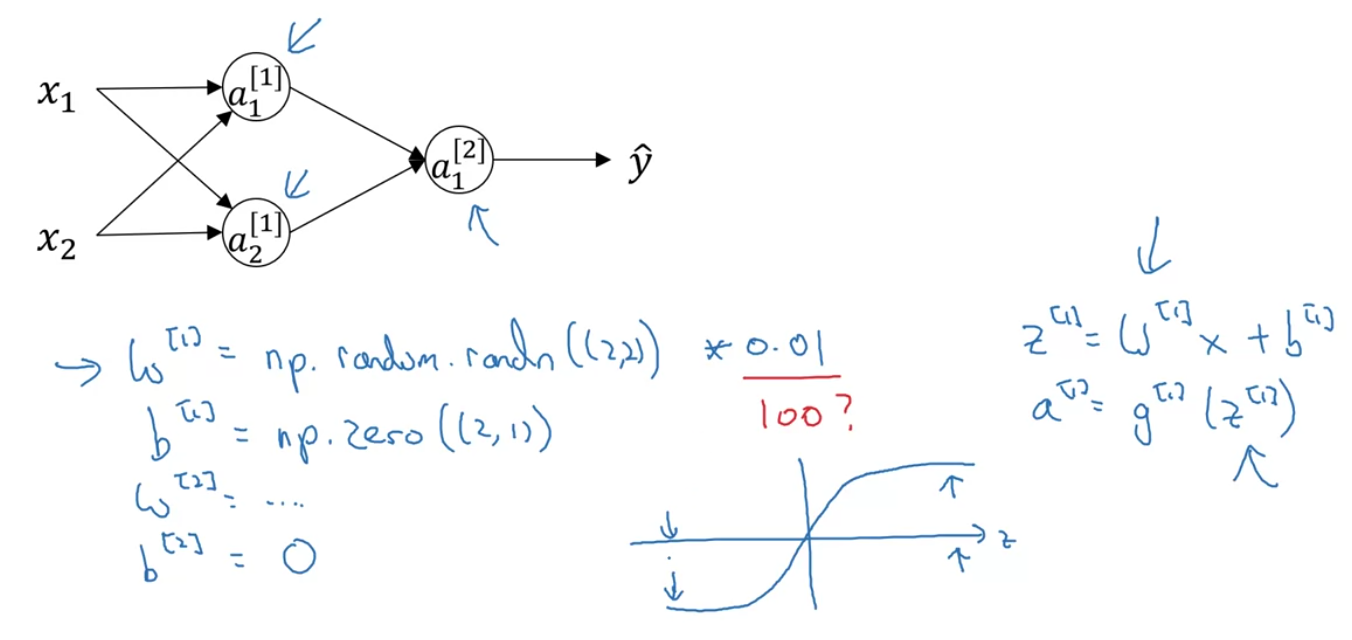 x₁
a₁^[1]
x₂
a₂^[1]
a₁^[2]
ŷ
→ W^[1] = np.random.randn((2,2)) * 0.01
100?
b^[1] = np.zero((2,1))
W^[2] = ....
b^[2] = 0
z^[1] = W^[1] x + b^[1]
a^[1] = g^[1](z^[1])
z